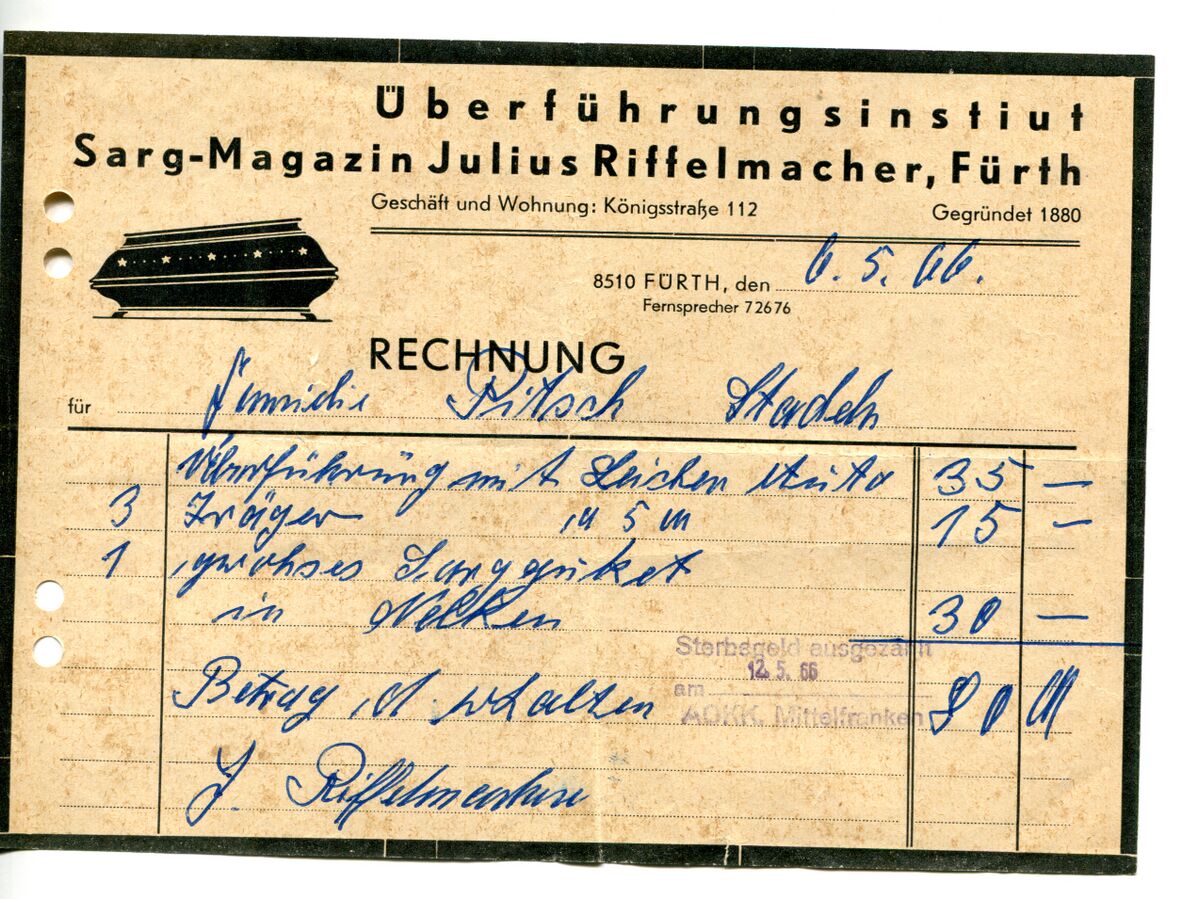 Überführungsinstiut
Sarg-Magazin Julius Riffelmacher, Fürth
Geschäft und Wohnung: Königsstraße 112
Gegründet 1880
8510 FÜRTH, den 6. 5. 66.
Fernsprecher 72676
RECHNUNG
für Familie Pitsch Stadeln
Überführung mit Leichen Auto 35 —
3 Träger a 5 M 15 —
1 Sargbuket
in Nelken 30 —
Sterbegeld ausgezahlt
12. 5. 66
am
AOKK. Mittelfranken
Betrag erhalten 80 M
J. Riffelmacher